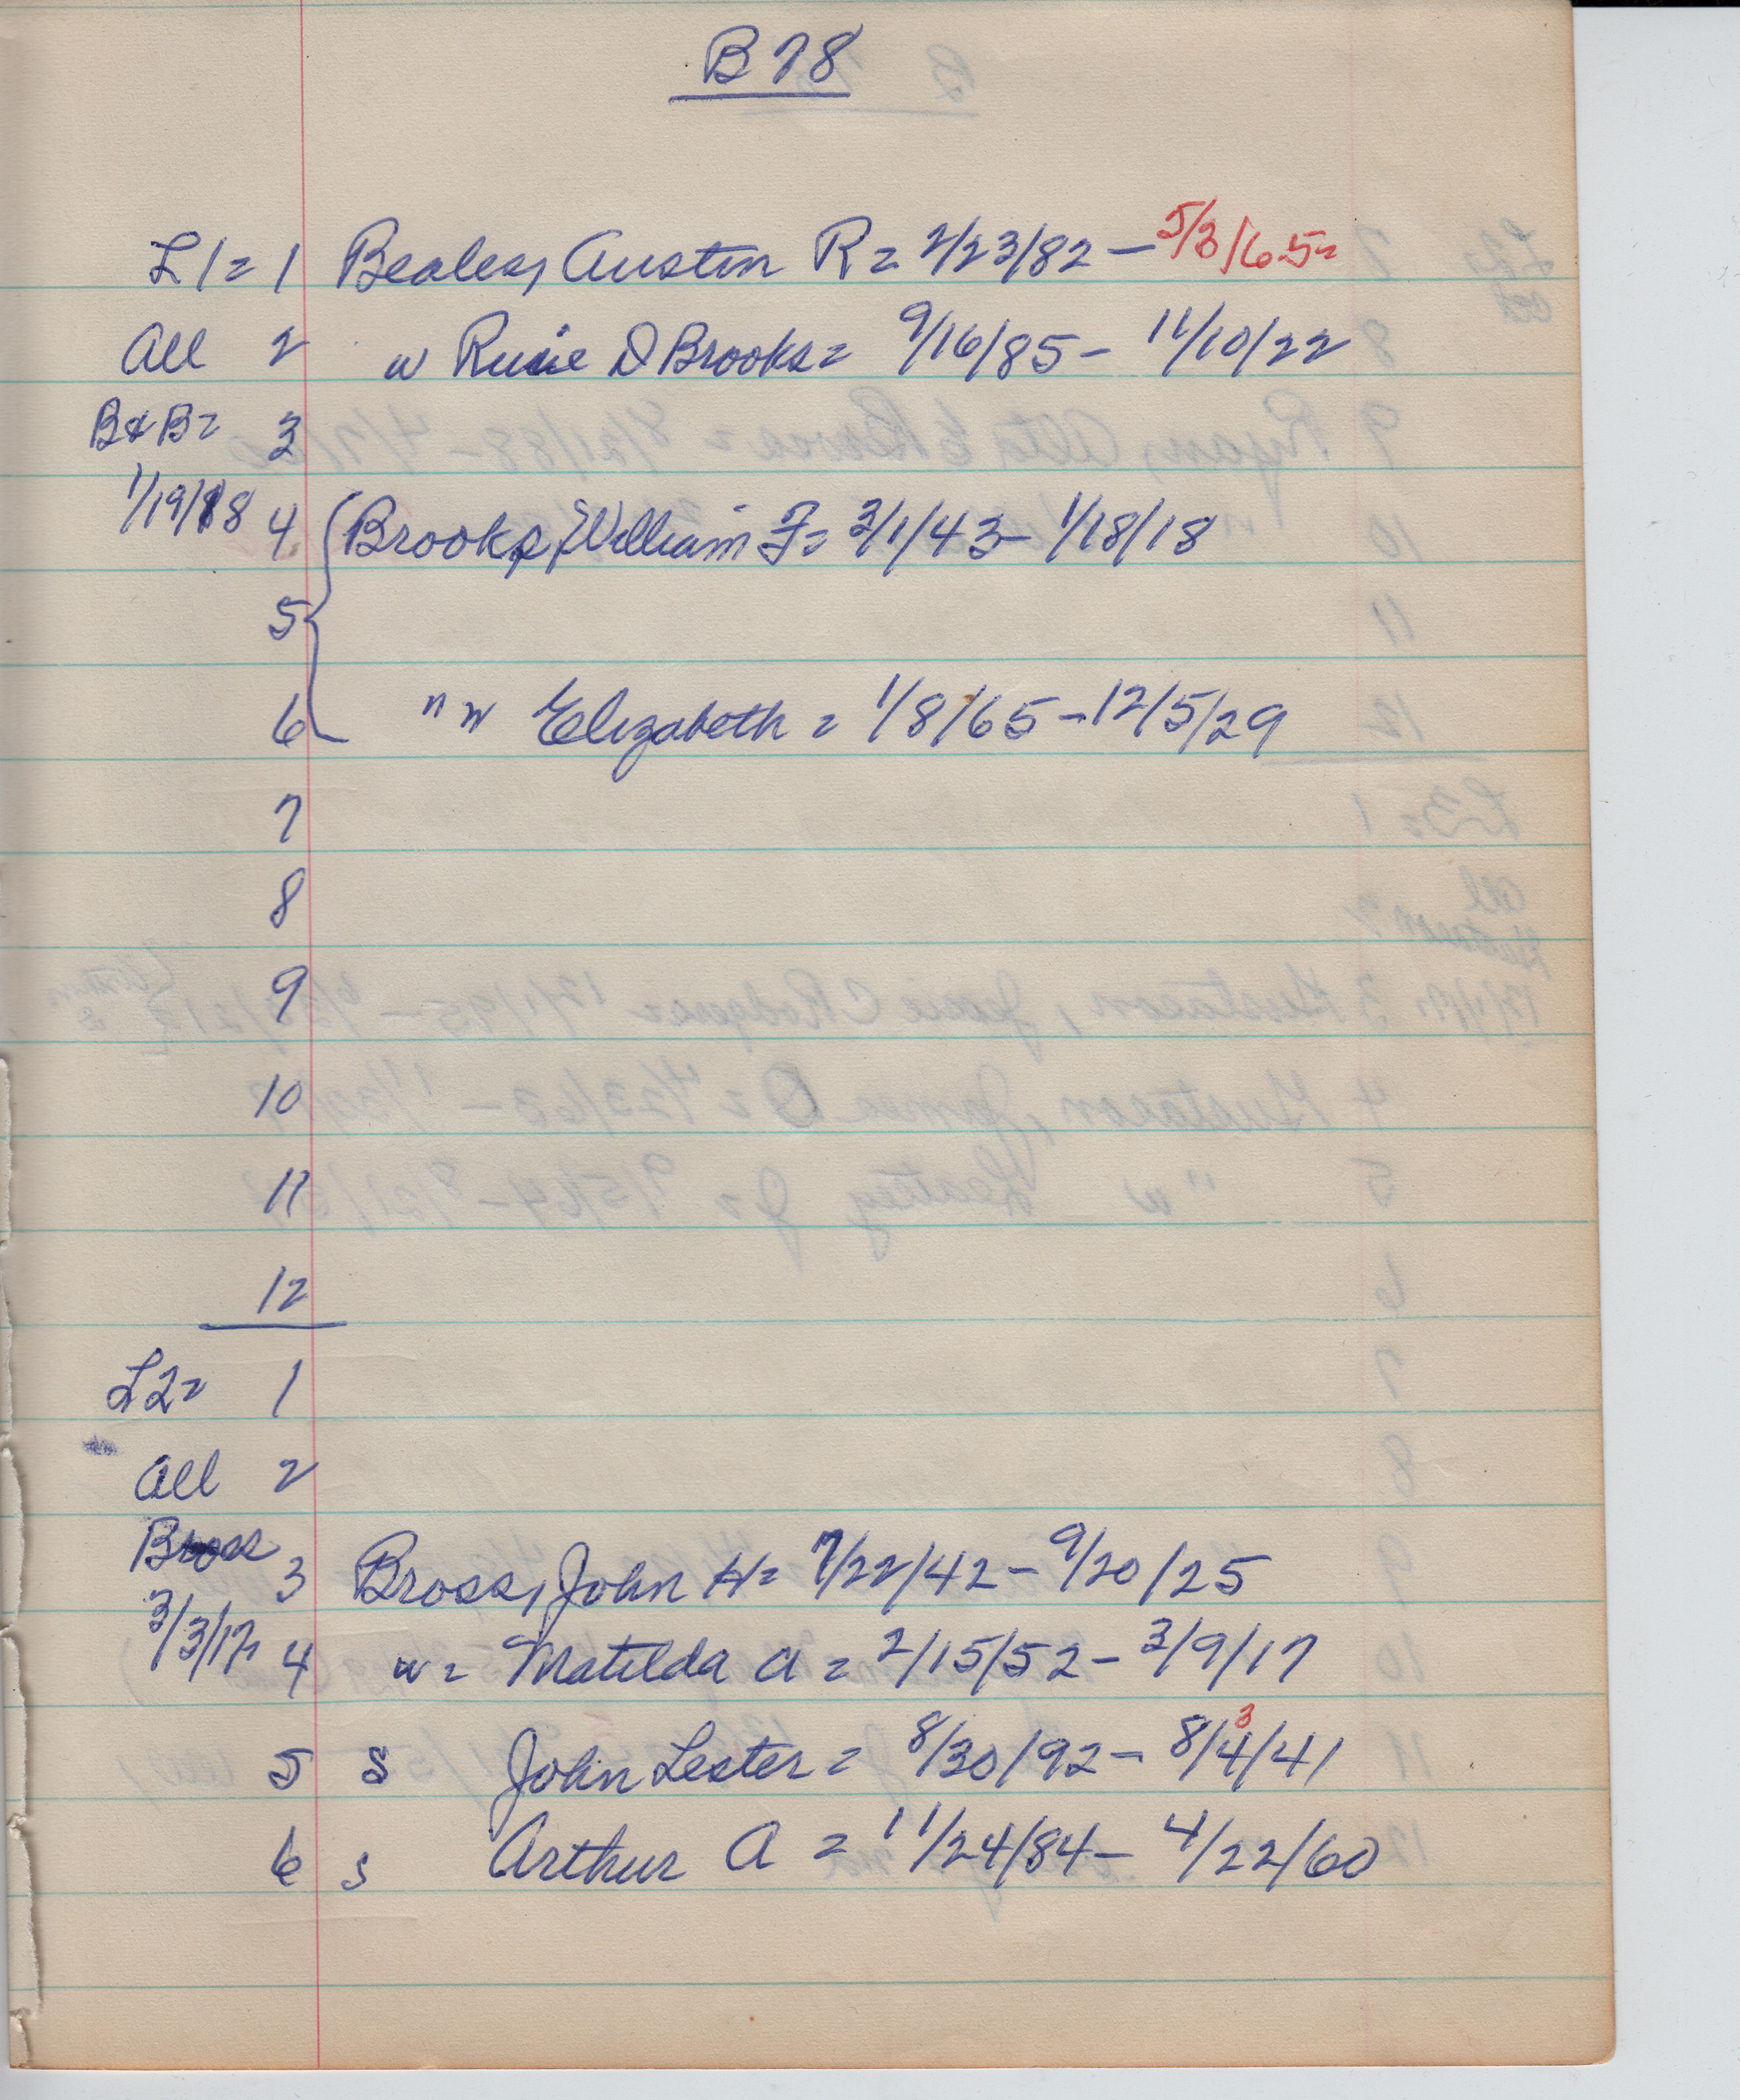 B 78
L1 = 1 Beales, Austin R = 2/23/82 – 5/3/65 =
All 2 w Rusie D Brooks = 9/16/85 – 11/10/22
B & B = 3
1/19/18 4 Brooks, William F = 3/1/43 – 1/18/18
5
6 " w Elizabeth = 1/8/65 – 12/5/29
7
8
9
10
11
12
L2 = 1
All 2
Bross 3 Bross, John H = 7/22/42 – 9/20/25
3/3/17 4 w = Matilda A = 2/15/52 – 3/9/17
3
5 s John Lester = 8/30/92 – 8/4/41
6 s Arthur A = 11/24/84 – 4/22/60